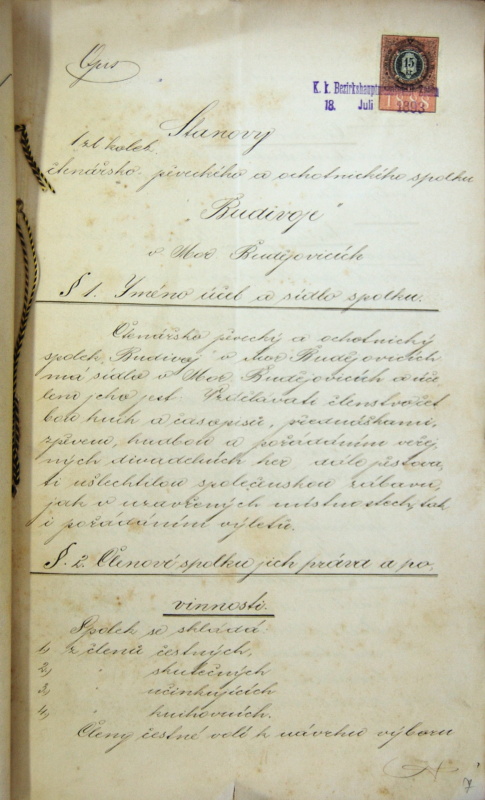 Opis
15
K. k. Bezirkshauptmannschaft
18. Juli 1893
1898
Stanovy
1 zl kolek.
čtenářsko-pěveckého a ochotnického spolku
Budivoje
v Mor Budějovicích
§ 1. Jméno účel a sídlo spolku.
Čtenářsko pěvecký a ochotnický
spolek „Budivoj" v Mor Budějovicích
má sídlo v Mor Budějovicích a úče
lem jeho jest: Vzdělávati členstvo čet
bou knih a časopisů, přednáškami,
zpěvem, hudbou a pořádáním veřej
ných divadelních her, dále pěstova
ti ušlechtilou společenskou zábavu,
jak v uzavřených místnostech, tak
i pořádáním výletů.
§. 2. Členové spolku jich práva a po,
vinnosti.
Spolek se skládá
1, z členů čestných,
2, " skutečných
3, " účinkujících
4, " knihovních.
Členy čestné volí k návrhu výboru